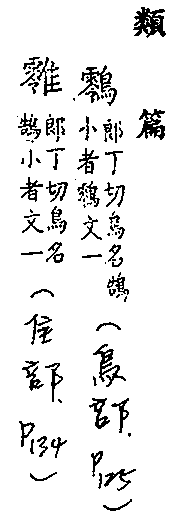 類篇
郎丁切鳥名鵠
小者文一
(鳥部. P125)
郎丁切鳥名
鵠小者文一
(隹部. P134)